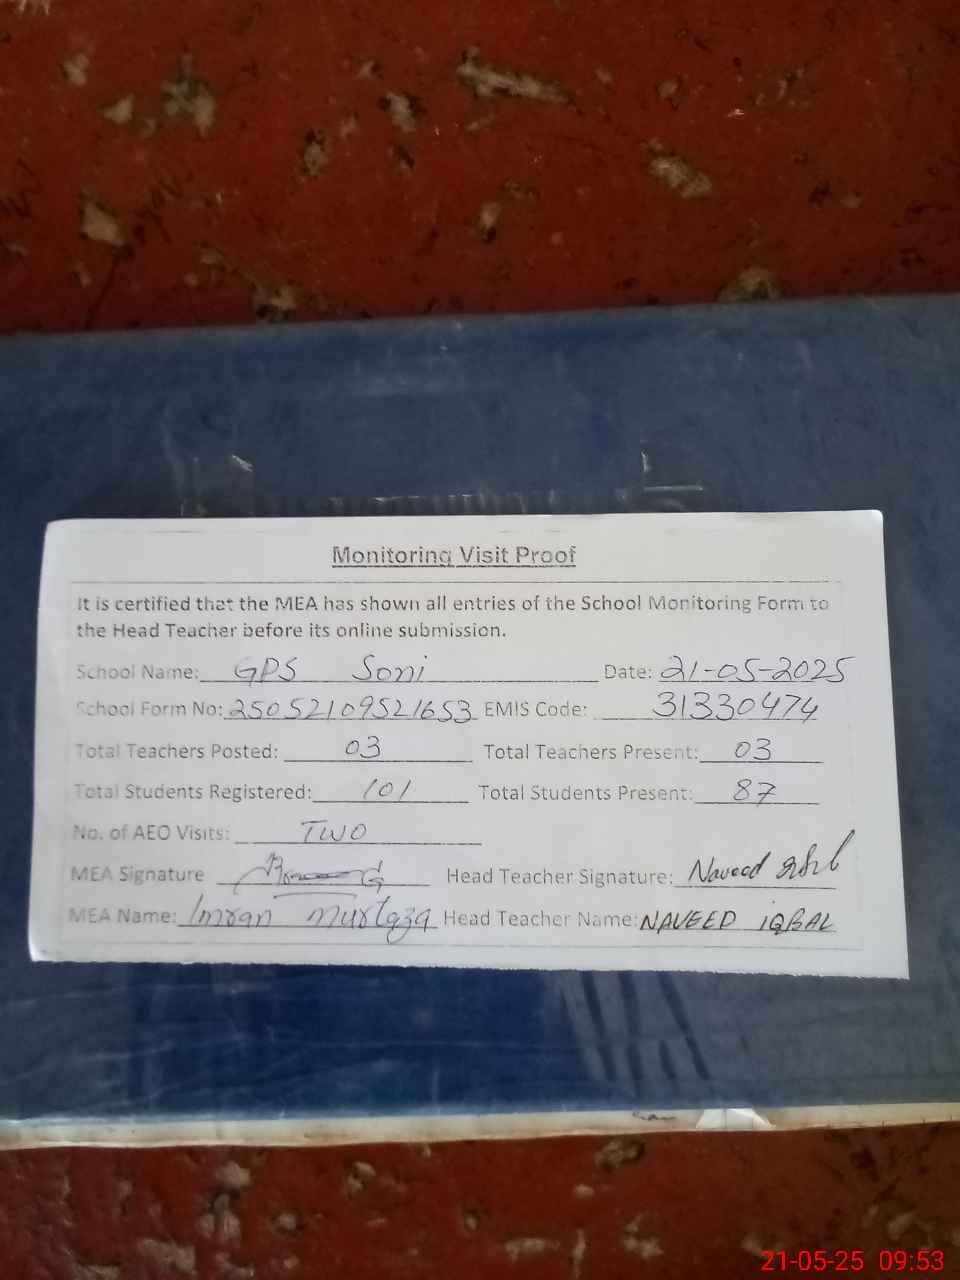 Monitoring Visit Proof
It is certified that the MEA has shown all entries of the School Monitoring Form to
the Head Teacher before its online submission.
School Name: GPS Soni Date: 21-05-2025
School Form No: 25052109521653 EMIS Code: 31330474
Total Teachers Posted: 03 Total Teachers Present: 03
Total Students Registered: 101 Total Students Present: 87
No. of AEO Visits: TWO
MEA Signature Head Teacher Signature: Naveed
MEA Name: Imran Murtaza Head Teacher Name: NAVEED IQBAL
21-05-25 09:53